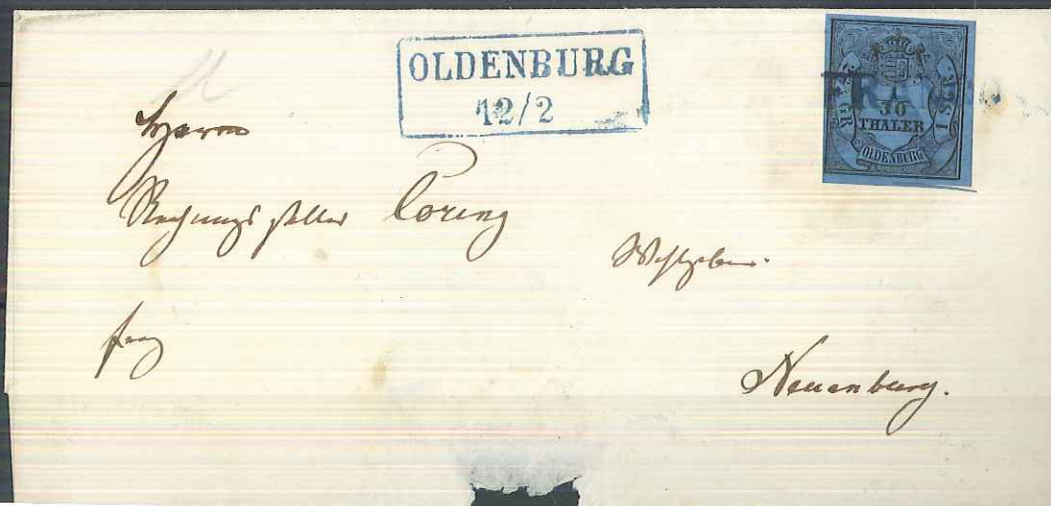 OLDENBURG
12/2
1
30
THALER
OLDENBURG
Herrn
Rechnungssteller Coring
Wohlgeboren
frei
Neuenburg.